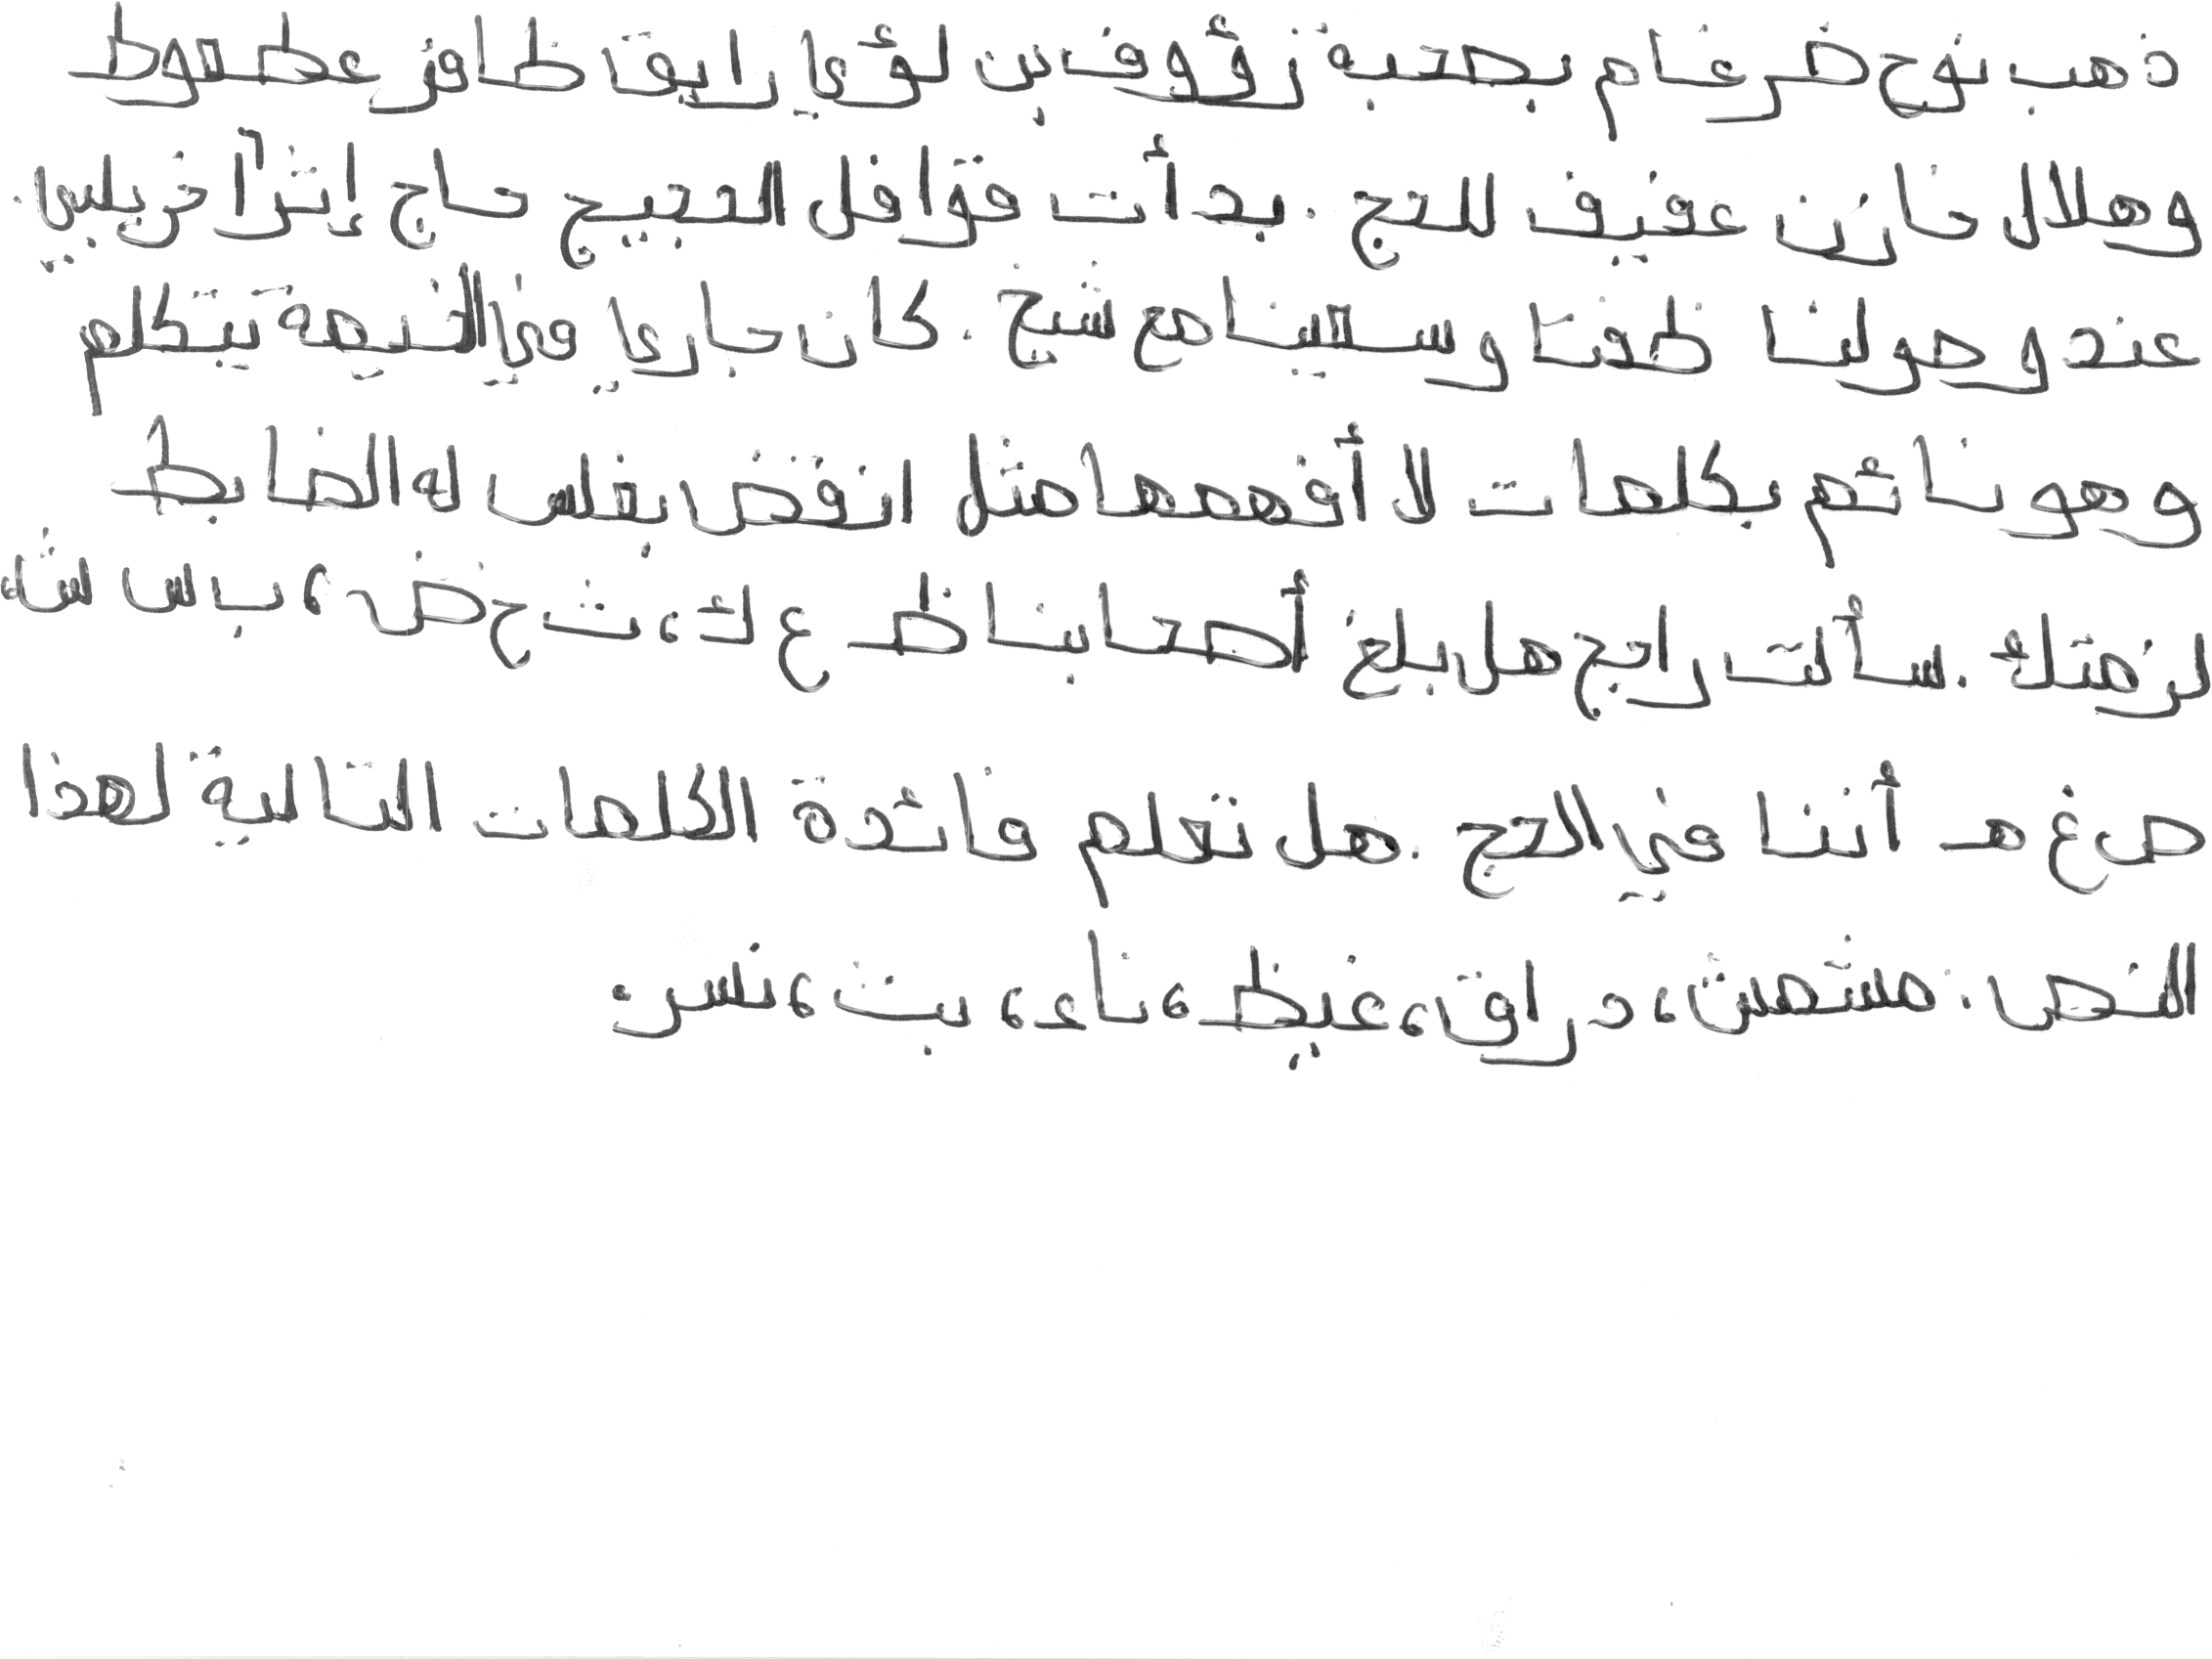 ذهب نوح ضرغام بصحبة زؤوف بن لؤي رايق ظافز عطعوط
وهلال خازن عفيف للحج . بدأت قوافل الحجيج حاج إثر آخر يلبي .
عند وصولنا طفنا وسعينا مع شيخ . كان جاري في الخيمة يتكلم
وهو نائم بكلمات لا أفهمها مثل انقض بغلس له الضابط
لزمتك . سألت راجح هل بلغ أصحابنا ظ ع ك، ث ح ض، ب س ش،
ص غ هـ أننا في الحج . هل تعلم فائدة الكلمات التالية لهذا
النص : مشمش، دراق، غيظ، ناء، بث، نسر .